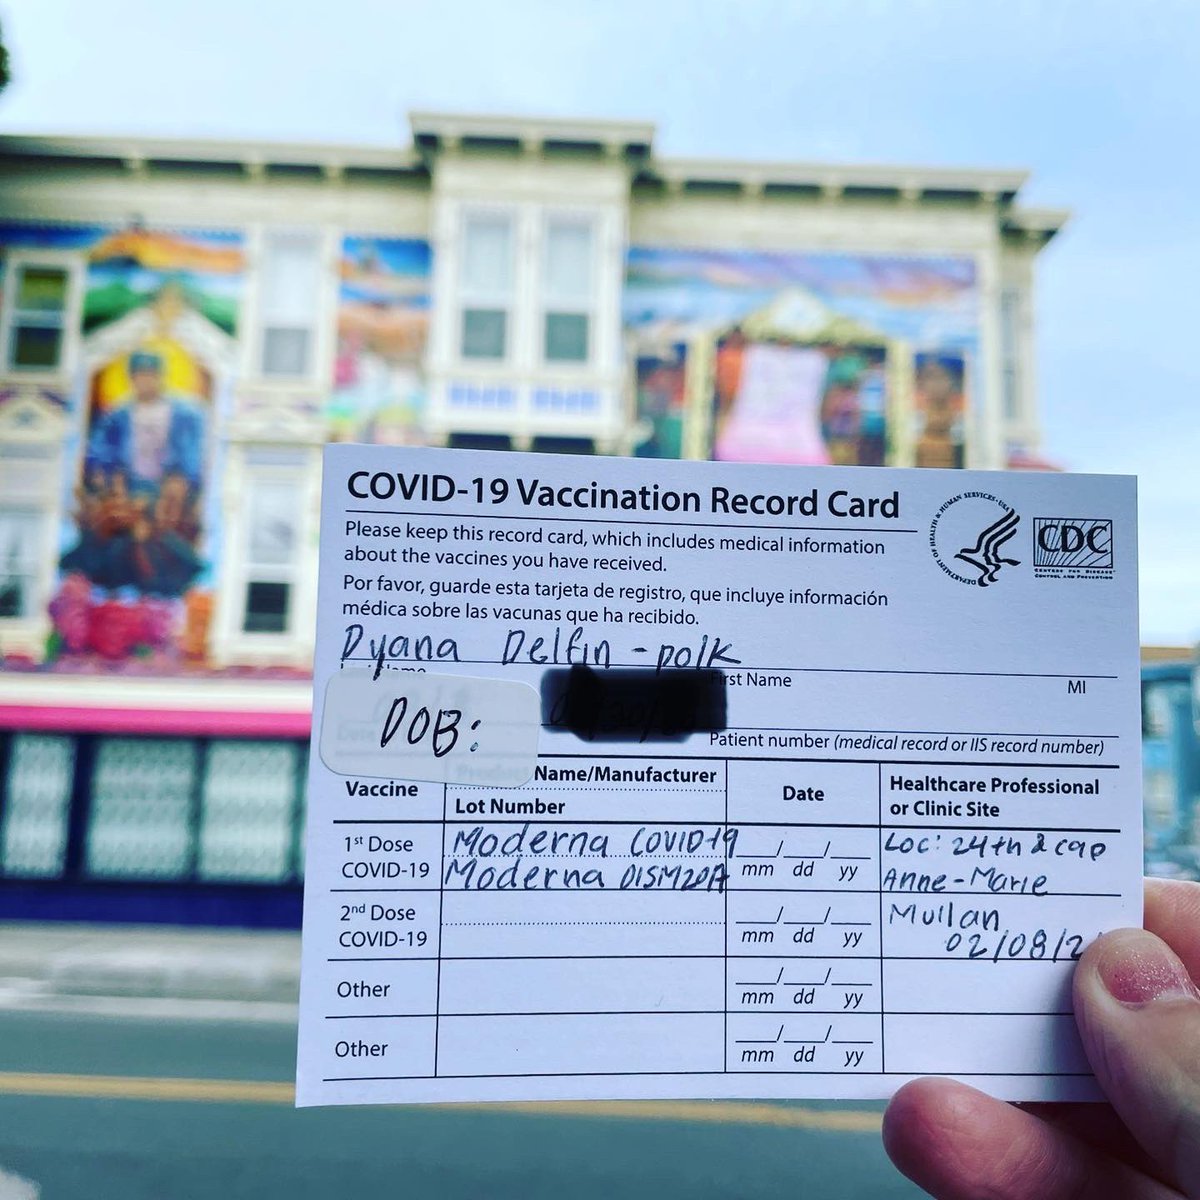 COVID-19 Vaccination Record Card
Please keep this record card, which includes medical information
about the vaccines you have received.
Por favor, guarde esta tarjeta de registro, que incluye información
médica sobre las vacunas que ha recibido.
DEPARTMENT OF HEALTH & HUMAN SERVICES · USA
CDC
CENTERS FOR DISEASE
CONTROL AND PREVENTION
Dyana Delfin-polk
First Name MI
DOB:
Patient number (medical record or IIS record number)
Vaccine
Product Name/Manufacturer
Lot Number
Date
Healthcare Professional
or Clinic Site
1st Dose
COVID-19
Moderna COVID-19
Moderna 015M20A
__/__/__
mm dd yy
Loc: 24th & cap
Anne-Marie
2nd Dose
COVID-19
__/__/__
mm dd yy
Mullan
02/08/2
Other
__/__/__
mm dd yy
Other
__/__/__
mm dd yy